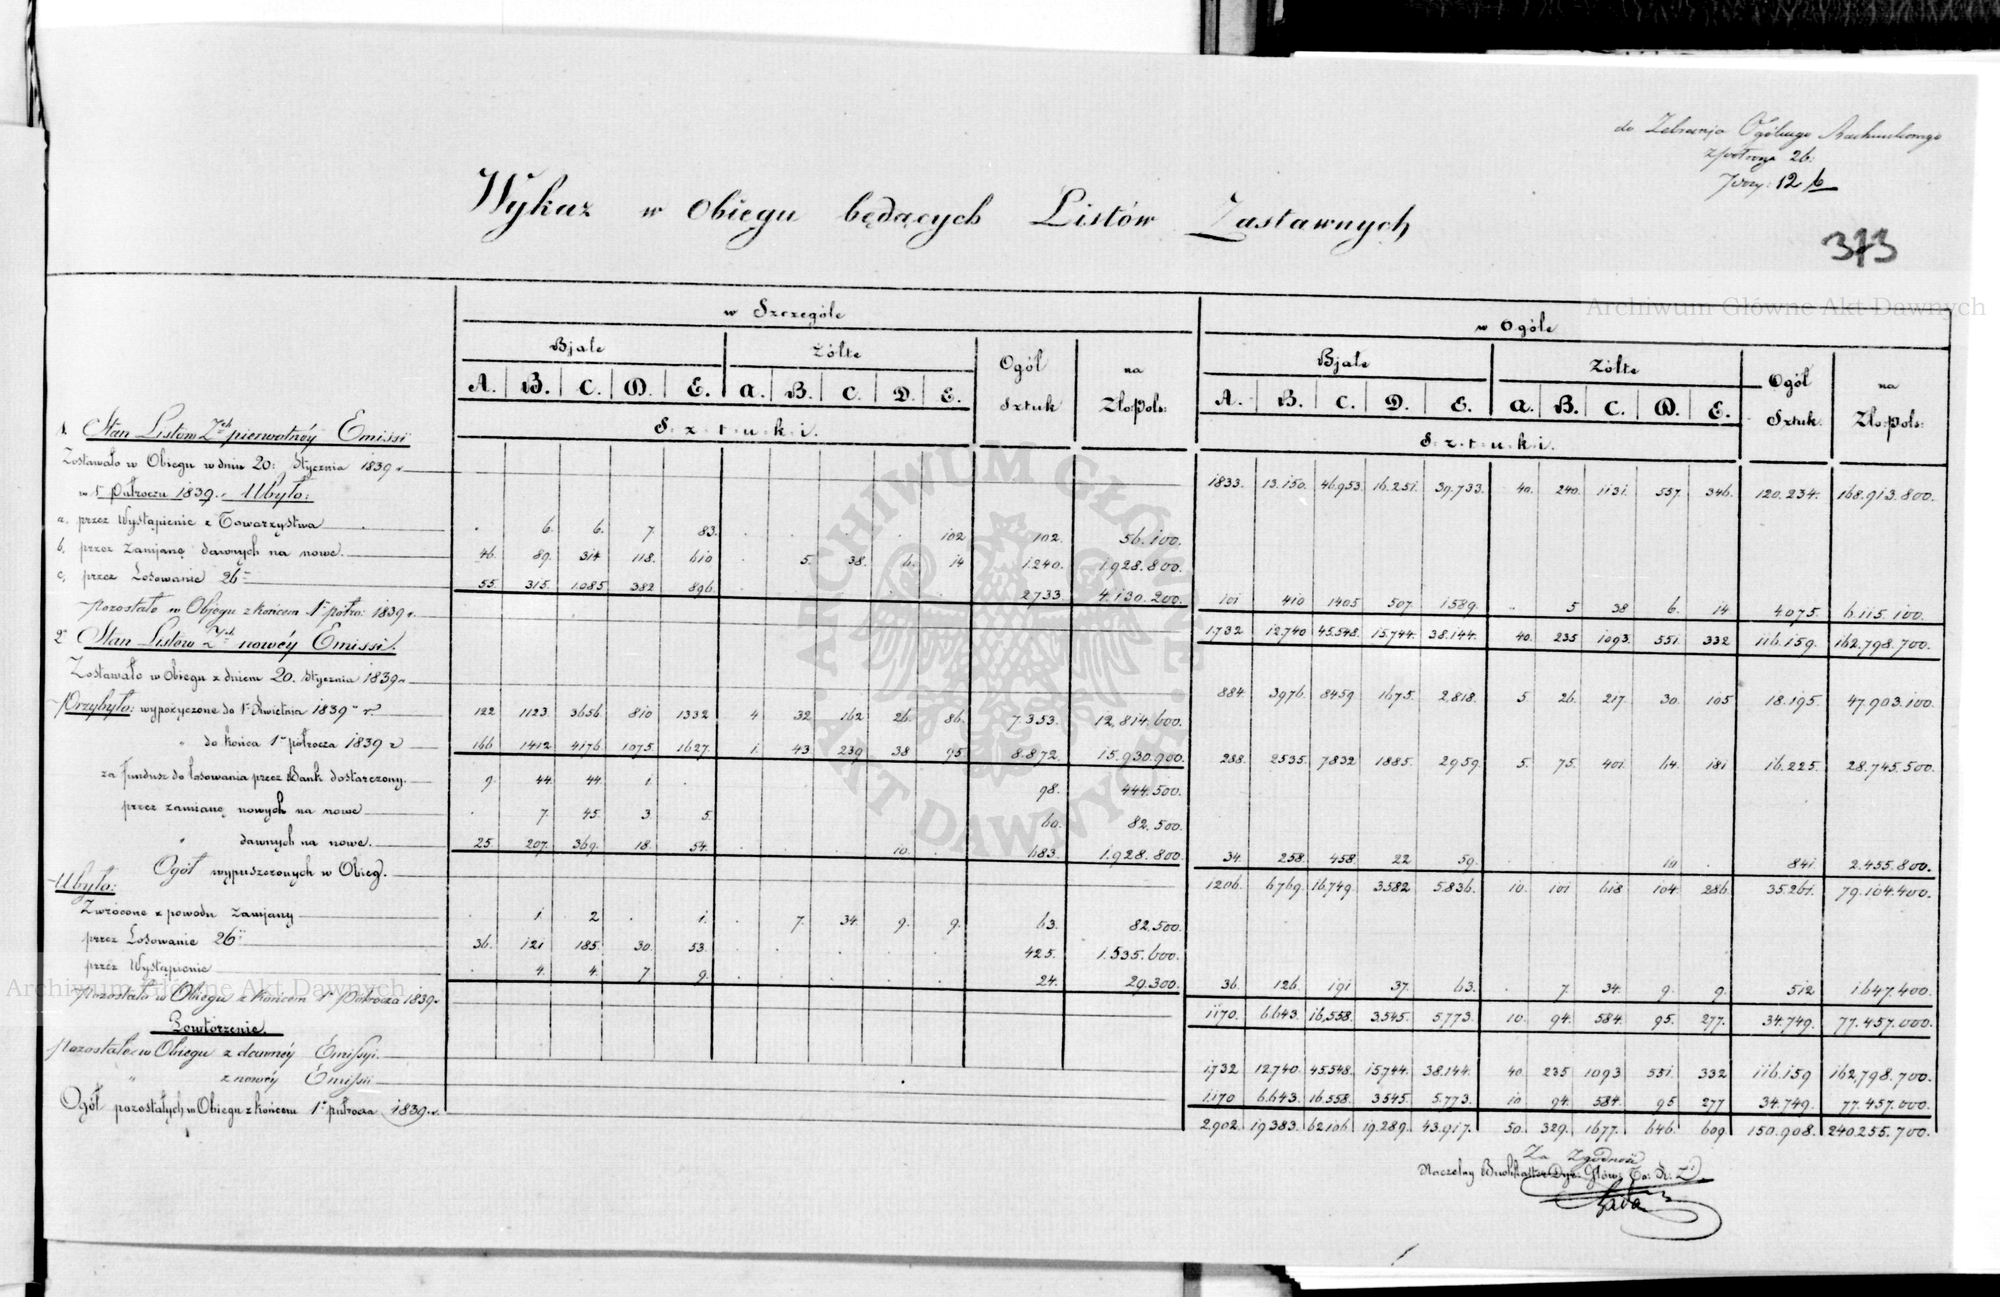 do Zebrania Ogólnego Rachunkowego
z półrocza 26:
12 b
373
Wykaz w Obiegu będących Listów Zastawnych
w Szczególe
w Ogóle
Białe Żółte Ogół Sztuk na Zło:pols:
Białe Żółte Ogół Sztuk na Zło:pols:
A. B. C. D. E. A. B. C. D. E.
A. B. C. D. E. A. B. C. D. E.
S.z.t.u.k.i.
S.z.t.u.k.i.
1. Stan Listów Zch pierwotnéy Emissii
Zostawało w Obiegu w dniu 20: Stycznia 1839 r. 1833. 13.150. 46.953. 16.251. 39.733. 40. 240. 1131. 557. 346. 120.234. 168.913.800.
w 1m Półroczu 1839. Ubyło:
a, przez Wystąpienie z Towarzystwa . 6. 6. 7. 83. . . . . 102. 56.100.
b, przez Zamianę dawnych na nowe. 46. 89. 314 118. 610 . 5. 38. 6. 14 1.240. 1.928.800.
c, przez Losowanie 26te 55. 315. 1.085. 382 896. . . . . . 2.733 4.130.200. 101 410 1405 507. 1.589. . 5 38 6. 14 4.075. 6.115.100.
Pozostało w Obiegu z końcem 1o półro: 1839 r. 1.732 12.740 45.548. 15.744. 38.144. 40. 235 1093. 551. 332 116.159. 162.798.700.
2o Stan Listów Zch nowéy Emissii.
Zostawało w Obiegu z dniem 20. Stycznia 1839 r. 884. 3976. 8459 1675. 2.818. 5 26. 217. 30. 105 18.195. 47.903.100.
Przybyło: wypożyczone do 1o Kwietnia 1839 r. 122 1123. 3656. 810 1332 4 32 162 26. 86. 7.353. 12,814.600.
" do końca 1o półrocza 1839 r 166 1412. 4176. 1075. 1627. 1. 43 239 38 95. 8.872. 15.930.900. 288. 2535. 7832 1885. 2959. 5. 75. 401. 64. 181 16.225. 28.745.500.
za fundusz do losowania przez Bank dostarczony. 9. 44. 44. 1. . 98. 444.500.
przez zamianę nowych na nowe . 7. 45. 3. 5. 60. 82.500.
" dawnych na nowe. 25. 207. 369. 18. 54. . . . 10. . 683. 1.928.800. 34. 258. 458 22 59. . . . 10 . 841. 2.455.800.
Ogół wypuszczonych w Obieg. 1206. 6769. 16.749. 3.582 5.836. 10. 101 618 104. 286 35.261. 79.104.400.
Ubyło:
Zwrócone z powodu Zamiany . 1. 2 . 1. . 7. 34. 9. 9. 63. 82.500.
przez Losowanie 26te 36. 121 185. 30. 53. . . . . . 425. 1.535.600.
przéz Wystąpienie . 4. 4. 7 9. . . . . . 24. 29.300. 36. 126. 191 37. 63. . 7. 34. 9. 9. 512 1.647.400.
Pozostało w Obiegu z końcem 1o Półrocza 1839 r. 1170. 6.643. 16,558. 3.545. 5.773. 10. 94. 584. 95. 277. 34.749. 77.457.000.
Powtórzenie.
Pozostało w Obiegu z dawnéy Emissyi. 1732 12740. 45.548. 15.744. 38.144. 40. 235 1093 551. 332 116.159 162,798.700.
" z nowéy Emissii 1.170 6.643. 16.558. 3545. 5.773. 10 94. 584. 95 277 34.749. 77.457.000.
Ogół pozostałych w Obiegu z końcem 1o półrocza 1839 r. 2902. 19.383. 62106 19.289. 43.917. 50. 329. 1677. 646. 609 150.908. 240.255.700.
Za Zgodność
Naczelny Buchhalter Dyr: Głów: To: Kr: Z:
ARCHIWUM GŁÓWNE AKT DAWNYCH
Archiwum Główne Akt Dawnych
Archiwum Główne Akt Dawnych